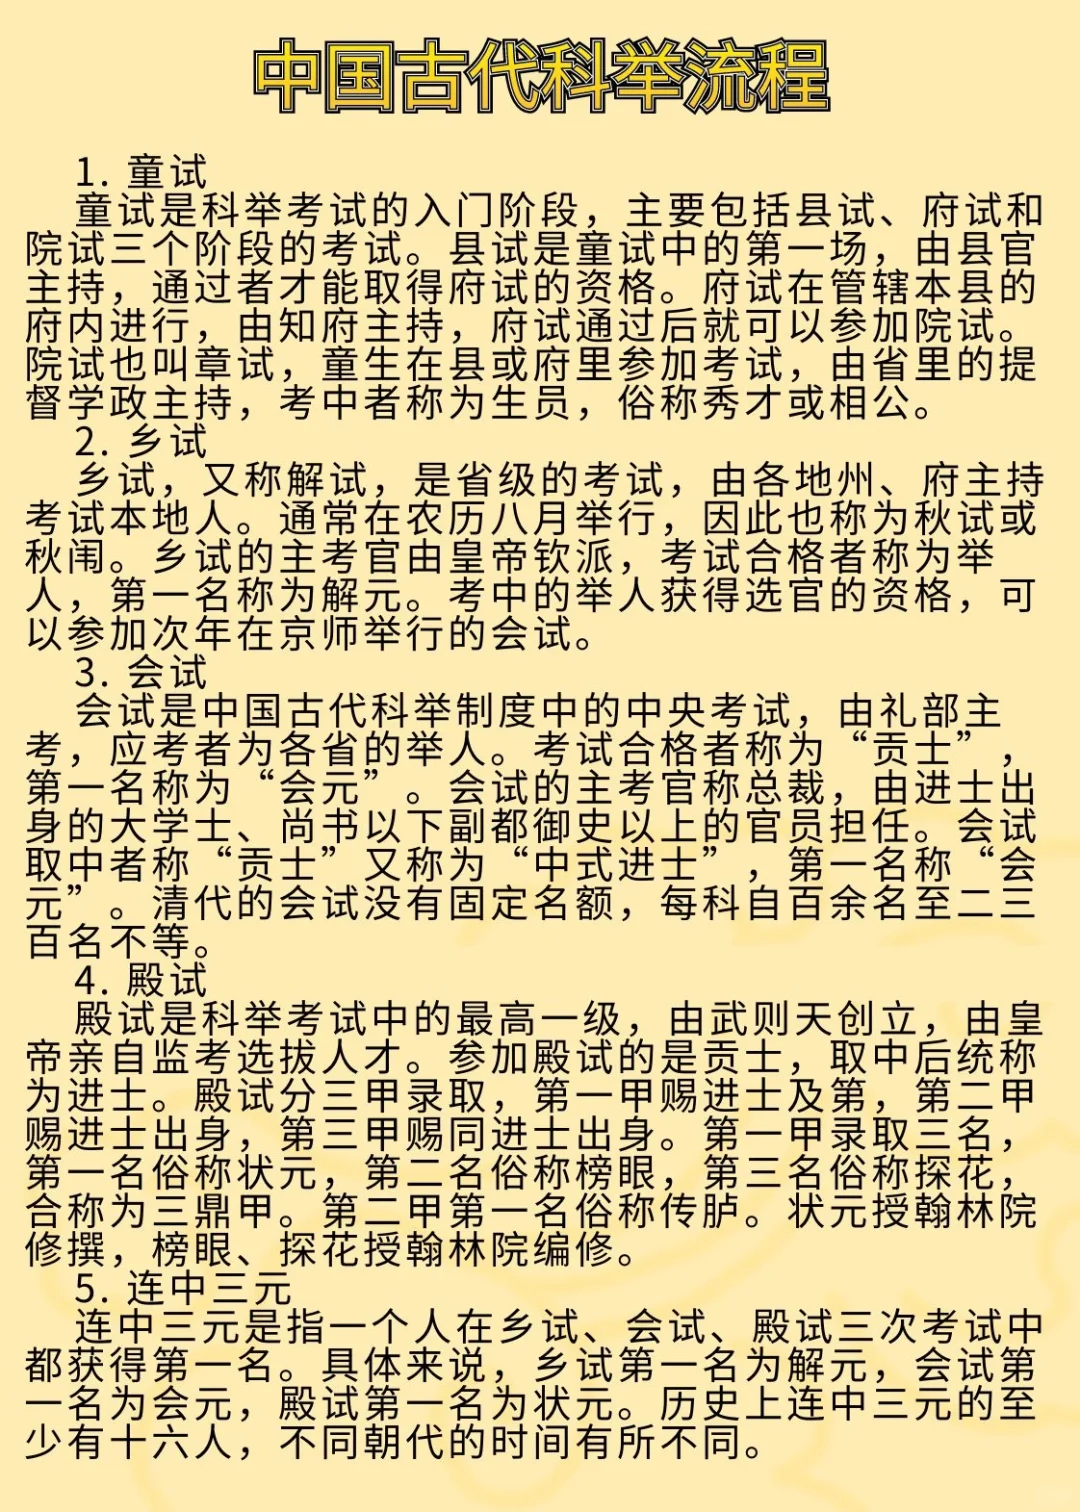 中国古代科举流程
1. 童试
童试是科举考试的入门阶段，主要包括县试、府试和
院试三个阶段的考试。县试是童试中的第一场，由县官
主持，通过者才能取得府试的资格。府试在管辖本县的
府内进行，由知府主持，府试通过后就可以参加院试。
院试也叫章试，童生在县或府里参加考试，由省里的提
督学政主持，考中者称为生员，俗称秀才或相公。
2. 乡试
乡试，又称解试，是省级的考试，由各地州、府主持
考试本地人。通常在农历八月举行，因此也称为秋试或
秋闱。乡试的主考官由皇帝钦派，考试合格者称为举
人，第一名称为解元。考中的举人获得选官的资格，可
以参加次年在京师举行的会试。
3. 会试
会试是中国古代科举制度中的中央考试，由礼部主
考，应考者为各省的举人。考试合格者称为“贡士”，
第一名称为“会元”。会试的主考官称总裁，由进士出
身的大学士、尚书以下副都御史以上的官员担任。会试
取中者称“贡士”又称为“中式进士”，第一名称“会
元”。清代的会试没有固定名额，每科自百余名至二三
百名不等。
4. 殿试
殿试是科举考试中的最高一级，由武则天创立，由皇
帝亲自监考选拔人才。参加殿试的是贡士，取中后统称
为进士。殿试分三甲录取，第一甲赐进士及第，第二甲
赐进士出身，第三甲赐同进士出身。第一甲录取三名，
第一名俗称状元，第二名俗称榜眼，第三名俗称探花，
合称为三鼎甲。第二甲第一名俗称传胪。状元授翰林院
修撰，榜眼、探花授翰林院编修。
5. 连中三元
连中三元是指一个人在乡试、会试、殿试三次考试中
都获得第一名。具体来说，乡试第一名为解元，会试第
一名为会元，殿试第一名为状元。历史上连中三元的至
少有十六人，不同朝代的时间有所不同。